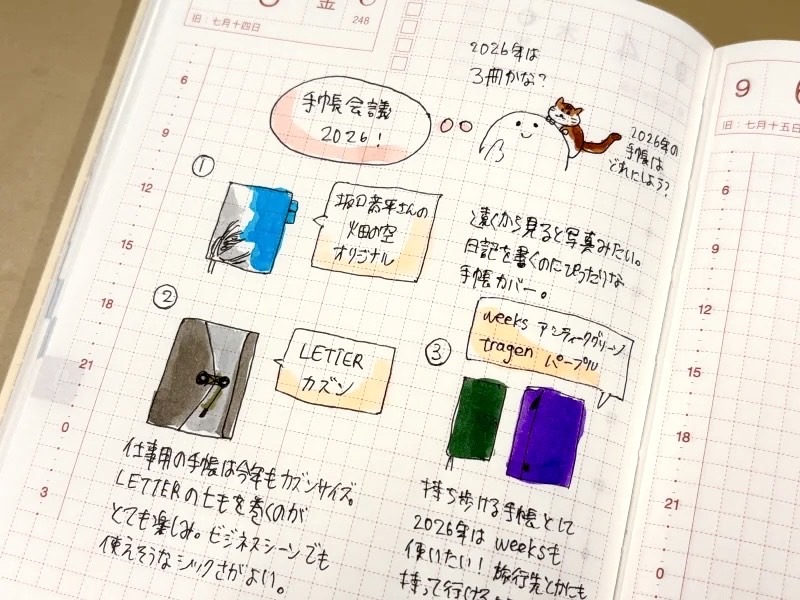 金
248
旧：七月十四日
2026年は
3冊かな？
手帳会議
2026！
2026年の
手帳は
どれにしよう？
①
坂口恭平さんの
畑の空
オリジナル
遠くから見ると写真みたい。
日記を書くのにぴったりな
手帳カバー。
②
LETTER
カズン
③
weeks アンティークグリーン
tragen パープル
仕事用の手帳は今年もカズンサイズ。
LETTERのヒモを巻くのが
とても楽しみ。ビジネスシーンでも
使えそうなシックさがよい。
持ち歩ける手帳として
2026年は weeksも
使いたい！旅行先とかにも
持って行ける
6
9
12
15
18
21
0
3
9
旧：七月十五日
6
9
12
15
18
21
0